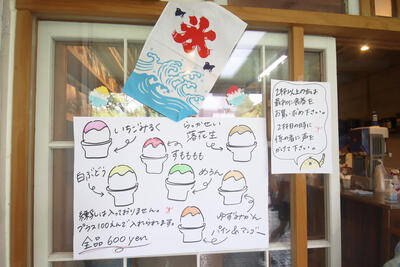 氷
いちごみるく
らっかせい
落花生
すももも
白ぶどう
めろん
ゆずみかん
パイン&マンゴー
練乳は入っておりません。
プラス100えんで入れられます。
全品 600yen
2杯以上の方は
最初に食券を
お買い求め下さい。
2杯目の時に
係の者に声を
かけて下さい。